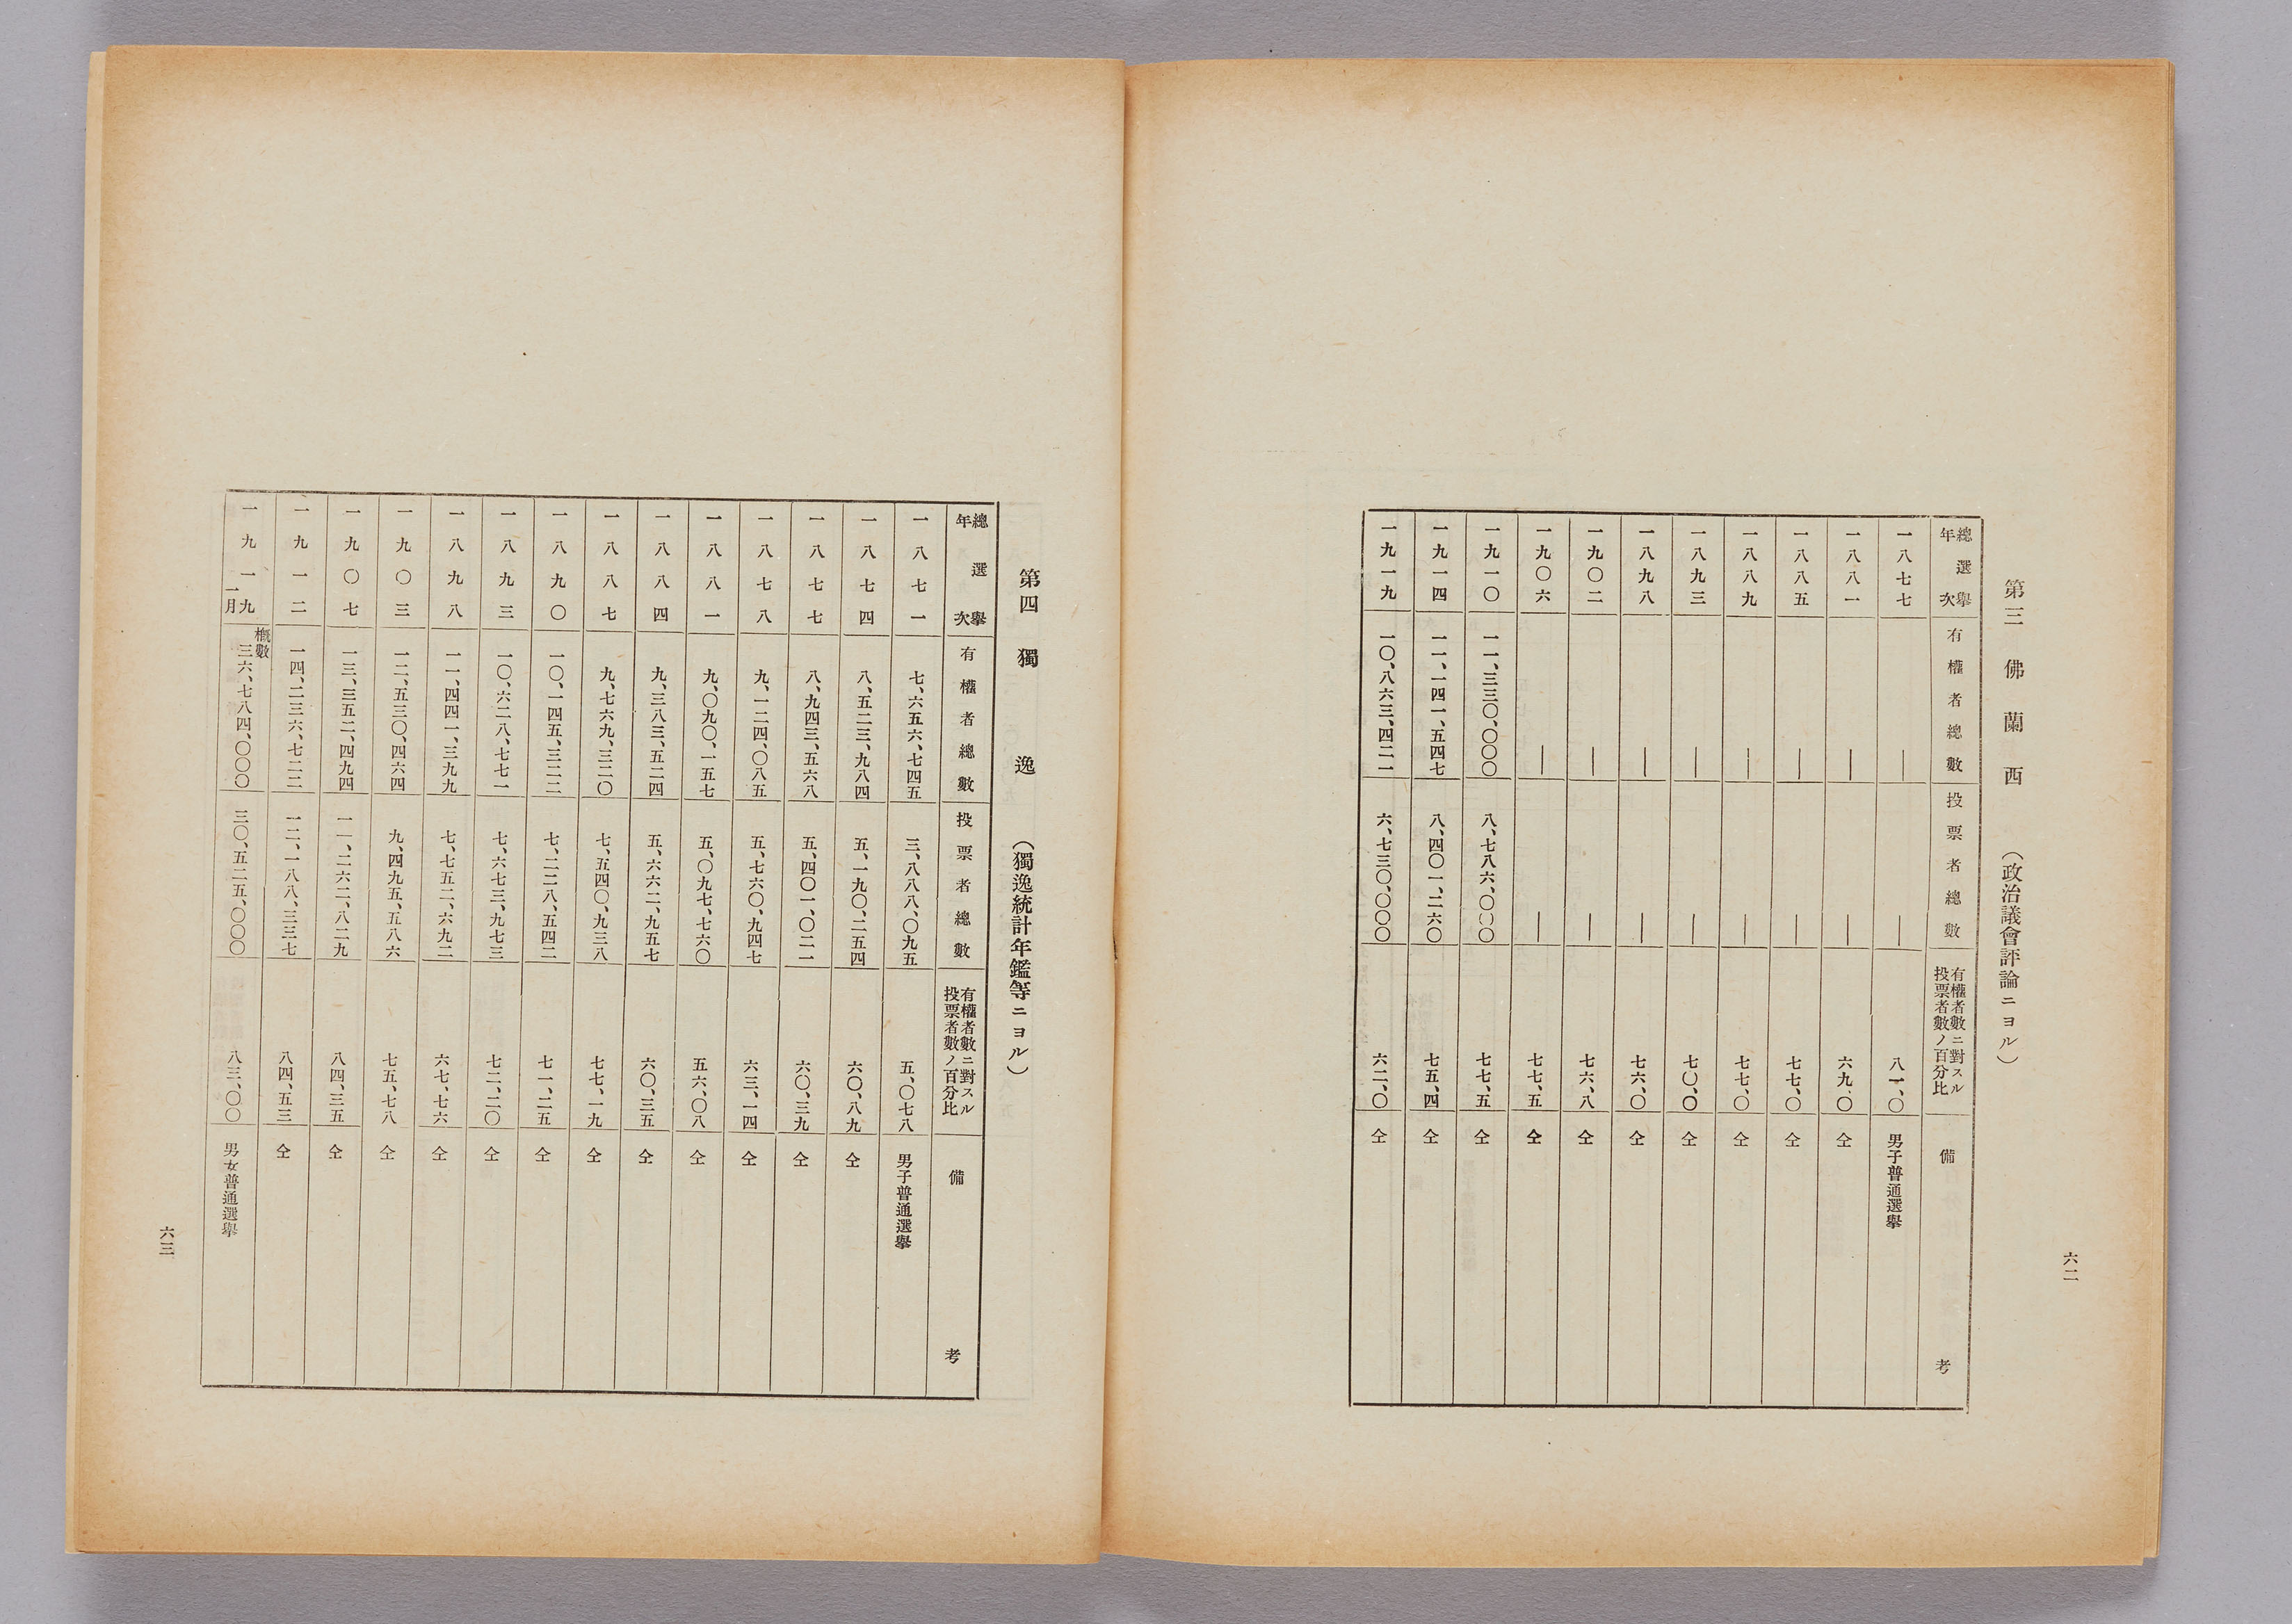 第三　佛蘭西　（政治議會評論ニヨル）
總選擧年次　有權者總數　投票者總數　有權者數ニ對スル投票者數ノ百分比　備考
一八七七　｜　｜　八一、〇　男子普通選擧
一八八一　｜　｜　六九、〇　仝
一八八五　｜　｜　七七、〇　仝
一八八九　｜　｜　七七、〇　仝
一八九三　｜　｜　七〇、〇　仝
一八九八　｜　｜　七六、〇　仝
一九〇二　｜　｜　七六、八　仝
一九〇六　｜　｜　七七、五　仝
一九一〇　一一、三三〇、〇〇〇　八、七八六、〇〇〇　七七、五　仝
一九一四　一一、一四一、五四七　八、四〇一、二六〇　七五、四　仝
一九一九　一〇、八六三、四二一　六、七三〇、〇〇〇　六二、〇　仝
六二
第四　獨逸　（獨逸統計年鑑等ニヨル）
總選擧年次　有權者總數　投票者總數　有權者數ニ對スル投票者數ノ百分比　備考
一八七一　七、六五六、七四五　三、八八八、〇九五　五、〇七八　男子普通選擧
一八七四　八、五二三、九八四　五、一九〇、二五四　六〇、八九　仝
一八七七　八、九四三、五六八　五、四〇一、〇二一　六〇、三九　仝
一八七八　九、一二四、〇八五　五、七六〇、九四七　六三、一四　仝
一八八一　九、〇九〇、一五七　五、〇九七、七六〇　五六、〇八　仝
一八八四　九、三八三、五二四　五、六六二、九五七　六〇、三五　仝
一八八七　九、七六九、三二〇　七、五四〇、九三八　七七、一九　仝
一八九〇　一〇、一四五、三二二　七、二二八、五四二　七一、二五　仝
一八九三　一〇、六二八、七七一　七、六七三、九七三　七二、二〇　仝
一八九八　一一、四四一、三九九　七、七五二、六九二　六七、七六　仝
一九〇三　一二、五三〇、四六四　九、四九五、五八六　七五、七八　仝
一九〇七　一三、三五二、四九四　一一、二六二、八二九　八四、三五　仝
一九一二　一四、二三六、七二二　一二、一八八、三三七　八四、五三　仝
一九一九一月　概數三六、七八四、〇〇〇　三〇、五二五、〇〇〇　八三、〇〇　男女普通選擧
六三